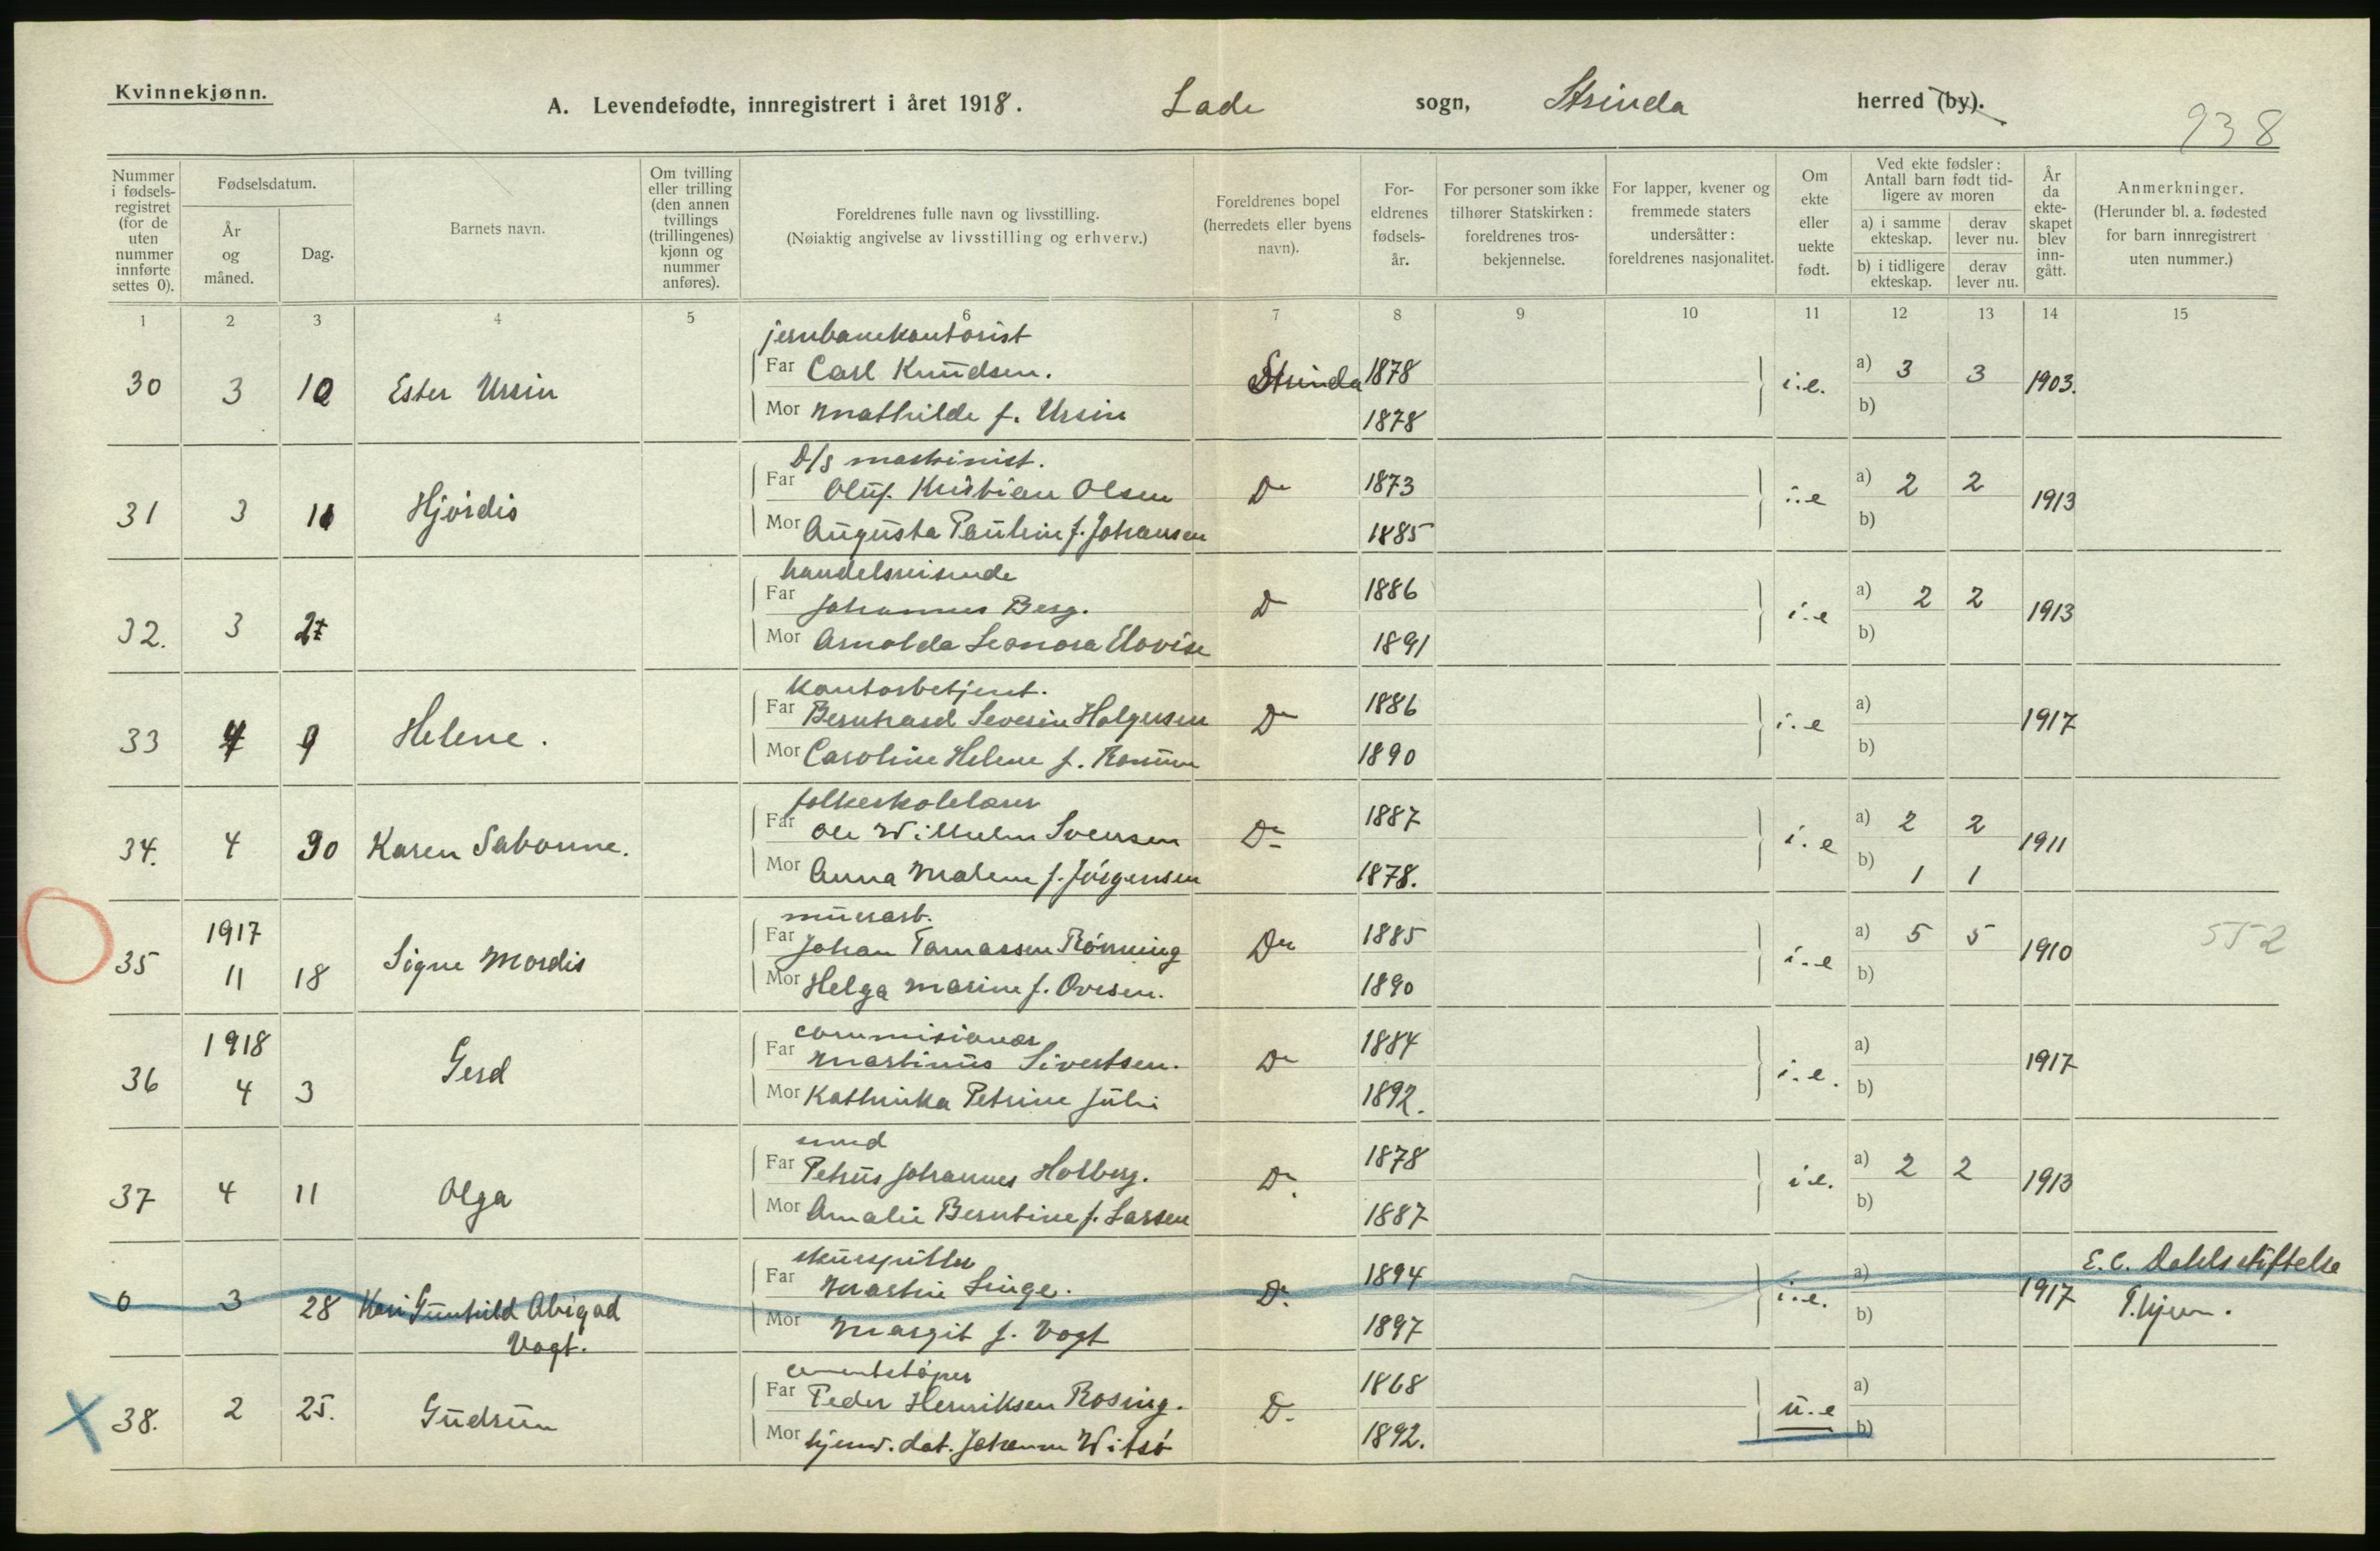 Kvinnekjønn.
A. Levendefødte, innregistrert i året 1918. Lade sogn, Strinda herred (by).
938
Nummer i fødsels-registret (for de uten nummer innførte settes 0).
Fødselsdatum.
År og måned.
Dag.
Barnets navn.
Om tvilling eller trilling (den annen tvillings (trillingenes) kjønn og nummer anføres).
Foreldrenes fulle navn og livsstilling.
(Nøiaktig angivelse av livsstilling og erhverv.)
Foreldrenes bopel (herredets eller byens navn).
For-eldrenes fødsels-år.
For personer som ikke tilhører Statskirken: foreldrenes tros-bekjennelse.
For lapper, kvener og fremmede staters undersåtter: foreldrenes nasjonalitet.
Om ekte eller uekte født.
Ved ekte fødsler: Antall barn født tid-ligere av moren
a) i samme ekteskap.
derav lever nu.
b) i tidligere ekteskap.
derav lever nu.
År da ekte-skapet blev inn-gått.
Anmerkninger.
(Herunder bl. a. fødested for barn innregistrert uten nummer.)
1 2 3 4 5 6 7 8 9 10 11 12 13 14 15
jernbanekontorist
30 3 10 Ester Ursin Far Carl Knudsen. Strinda 1878 i.e. a) 3 3 1903.
Mor Mathilde f. Ursin 1878 b)
D/s maskinist.
31 3 11 Hjördis Far Oluf Kristian Olsen Do 1873 i.e a) 2 2 1913
Mor Augusta Pauline f. Johansen 1885 b)
handelsreisende
32. 3 27 Far Johannes Berg. Do 1886 i.e a) 2 2 1913
Mor Arnolda Leonora Elovise 1891 b)
kontorbetjent.
33 4 9 Helene. Far Bernhard Severin Holgersen Do 1886 i.e a) 1917
Mor Caroline Helene f. 1890 b)
folkeskolelærer
34. 4 30 Karen Sabonne. Far Ole Wilhelm Svensen Do 1887 i.e a) 2 2 1911
Mor Anna Malene f. Jörgensen 1878. b) 1 1
murarb.
35 1917 11 18 Signe Mordis Far Johan Tomassen Rönning Do 1885 i.e a) 5 5 1910 552
Mor Helga Marine f. Ovesen. 1890 b)
commisionær
36 1918 4 3 Gerd Far Martinus Sivertsen. Do 1884 i.e. a) 1917
Mor Kathinka Petrine Juli 1892. b)
smed
37 4 11 Olga Far Petrus Johannes Holberg. Do. 1878 i.e. a) 2 2 1913
Mor Amalie Berntine f. Larsen 1887 b)
skuespiller
0 3 28 Kari Gunhild Abigael Vogt. Far Martin Linge. Do. 1894 i.e. a) 1917 E. C. Dahls stiftelse
Mor Margit f. Vogt 1897 b) T.hjem.
cementstöper
38. 2 25. Gudrun Far Peder Henriksen Rosing. Do. 1868 u.e a)
Mor hjemv. dat. Johanne Witsö 1892. b)